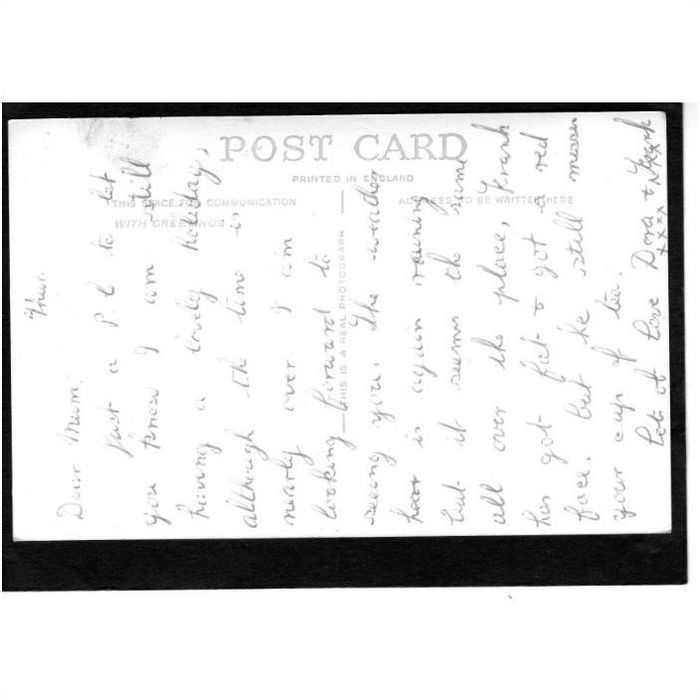 POST CARD
PRINTED IN ENGLAND
THIS SPACE FOR COMMUNICATION
ADDRESS TO BE WRITTEN HERE
WITH GREETINGS
THIS IS A REAL PHOTOGRAPH
Thur.
Dear Mum.
Just a P.C to let
you know I am still
having a lovely holiday,
although the time is
nearly over. I am
looking forward to
seeing you. The weather
here is again raining
but it seems the same
all over the place, Frank
has got fat & got a red
face. but he still misses
your cup of tea.
Lots of Love Dora & Frank
xxxx